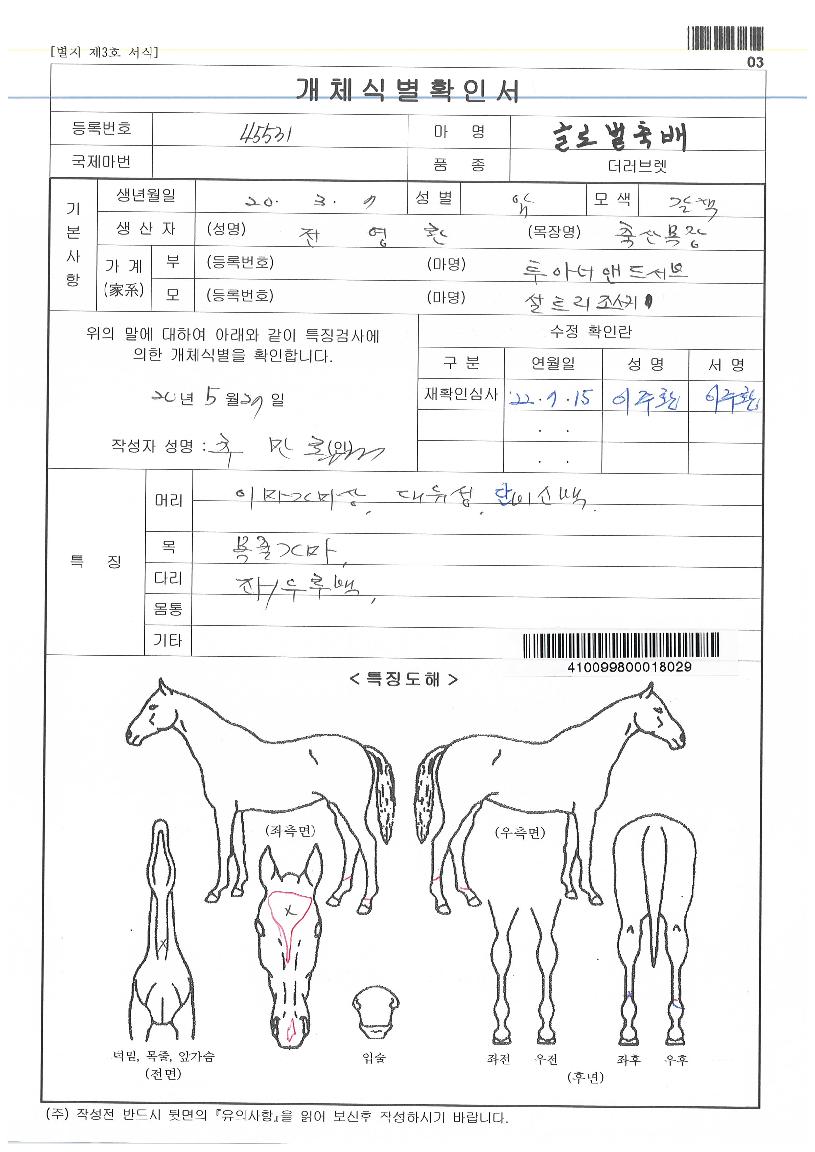 [별지 제3호 서식]
03
개체식별확인서
등록번호 45531 마 명 글로벌축배
국제마번 품 종 더러브렛
기본사항
생년월일 20. 3. 9 성 별 암 모 색 갈색
생 산 자 (성명) 전 영 환 (목장명) 축산목장
가 계 (家系) 부 (등록번호) (마명) 투아너앤드서브
모 (등록번호) (마명)
위의 말에 대하여 아래와 같이 특징검사에
의한 개체식별을 확인합니다.
20년 5월 29일
작성자 성명 : (인)
수정 확인란
구 분 연월일 성 명 서 명
재확인심사 '22. 9. 15 이주환 이주환
. .
. .
특 징
머리 이마가마상, 대유성, 단비소백.
목 목줄가마,
다리 좌/우후백,
몸통
기타
410099800018029
< 특징도해 >
(좌측면) (우측면)
턱밑, 목줄, 앞가슴
(전면)
입술
좌전 우전 좌후 우후
(후면)
(주) 작성전 반드시 뒷면의 『유의사항』을 읽어 보신후 작성하시기 바랍니다.